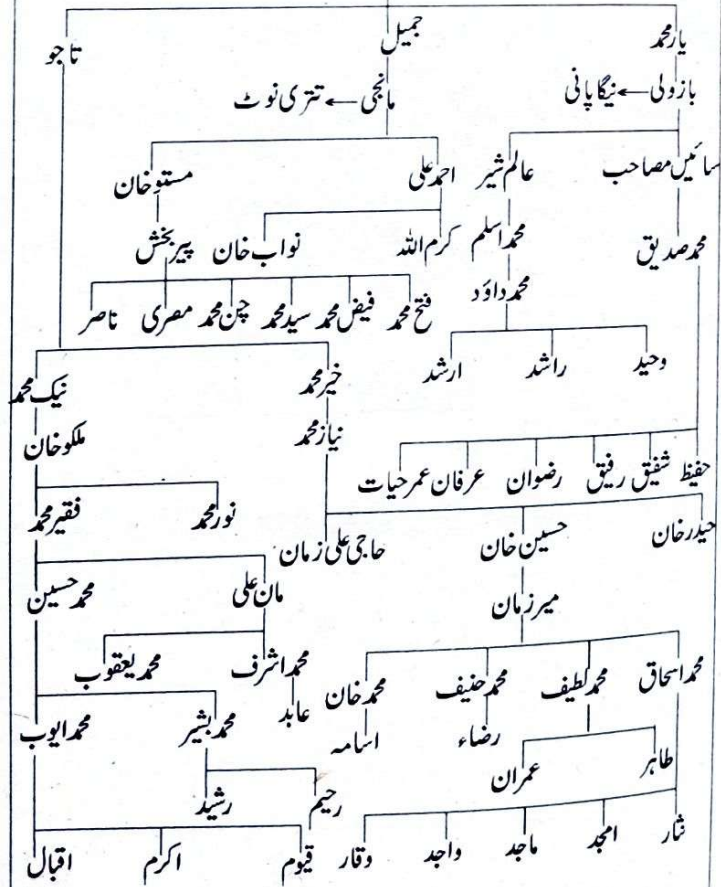 یار محمد جمیل تاجو
بازولی ← نیگاپانی مانجی ← تتری نوٹ
سائیں مصاحب عالم شیر احمد علی مستو خان
محمد صدیق محمد اسلم کرم اللہ نواب خان پیر بخش
محمد داؤد
فتح محمد فیض محمد سید محمد چن محمد مصری ناصر
وحید راشد ارشد
خیر محمد نیک محمد
نیاز محمد ملکو خان
حفیظ شفیق رفیق رضوان عرفان عمر حیات
نور محمد فقیر محمد
حیدر خان حسین خان حاجی علی زمان
میر زمان مان علی محمد حسین
محمد اسحاق محمد لطیف محمد حنیف محمد خان محمد اشرف محمد یعقوب
رضاء اسامہ عابد محمد بشیر محمد ایوب
طاہر عمران رحیم رشید
نثار امجد ماجد واجد وقار قیوم اکرم اقبال